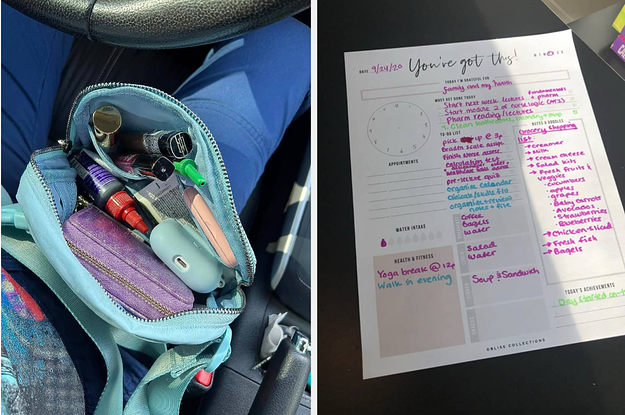 DATE 9/24/20
You've got this!
TODAY I'M GRATEFUL FOR
family and my health
MUST GET DONE TODAY
Start next week lectures fundamentals + pharm
Start module 2 of nurse logic (ATI)
Pharm reading/lectures
TO DO LIST
pick up @ 3p
braden scale assign
finish stress assess.
calculation test
pre-lecture quiz
organize calendar
APPOINTMENTS
WATER INTAKE
Coffee
Bagels
water
Salad
water
Soup & Sandwich
HEALTH & FITNESS
Yoga break @ 12p
Walk in evening
NOTES & DOODLES
Grocery shopping list
→ creamer
→ milk
→ cream cheese
→ Salad kits
→ Fresh fruits & veggies
· cucumbers
· apples
· grapes
· Baby carrots
· Avocados
· Strawberries
· Blueberries
→ Chicken-sliced
→ Fresh fish
→ Bagels
TODAY'S ACHIEVEMENTS
ONLISS COLLECTIONS